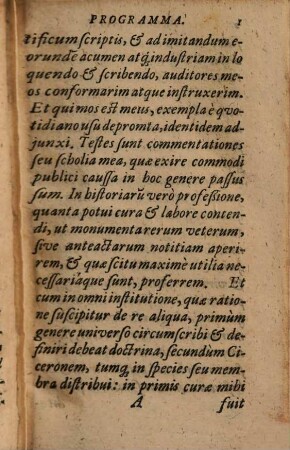 PROGRAMMA. 1
tificum scriptis, & ad imitandum e-
orundē acumen atq́; industriam in lo
quendo & scribendo, auditores me-
os conformarim atque instruxerim.
Et qui mos est meus, exempla è quo-
tidiano usu depromta, identidem ad-
junxi. Testes sunt commentationes
seu scholia mea, quæ exire commodi
publici caussa in hoc genere passus
sum. In historiarū verò profeßione,
quanta potui cura & labore conten-
di, ut monumenta rerum veterum,
sive anteactarum notitiam aperi-
rem, & quæ scitu maximè utilia ne-
cessariáque sunt, proferrem. Et
cum in omni institutione, quæ ratio-
ne suscipitur de re aliqua, primùm
genere universo circumscribi & de-
finiri debeat doctrina, secundùm Ci-
ceronem, tumq́; in species seu mem-
bra distribui: in primis curæ mihi
A fuit